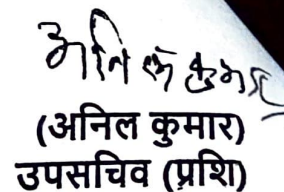 अनिल कुमार
(अनिल कुमार)
उपसचिव (प्रशि)